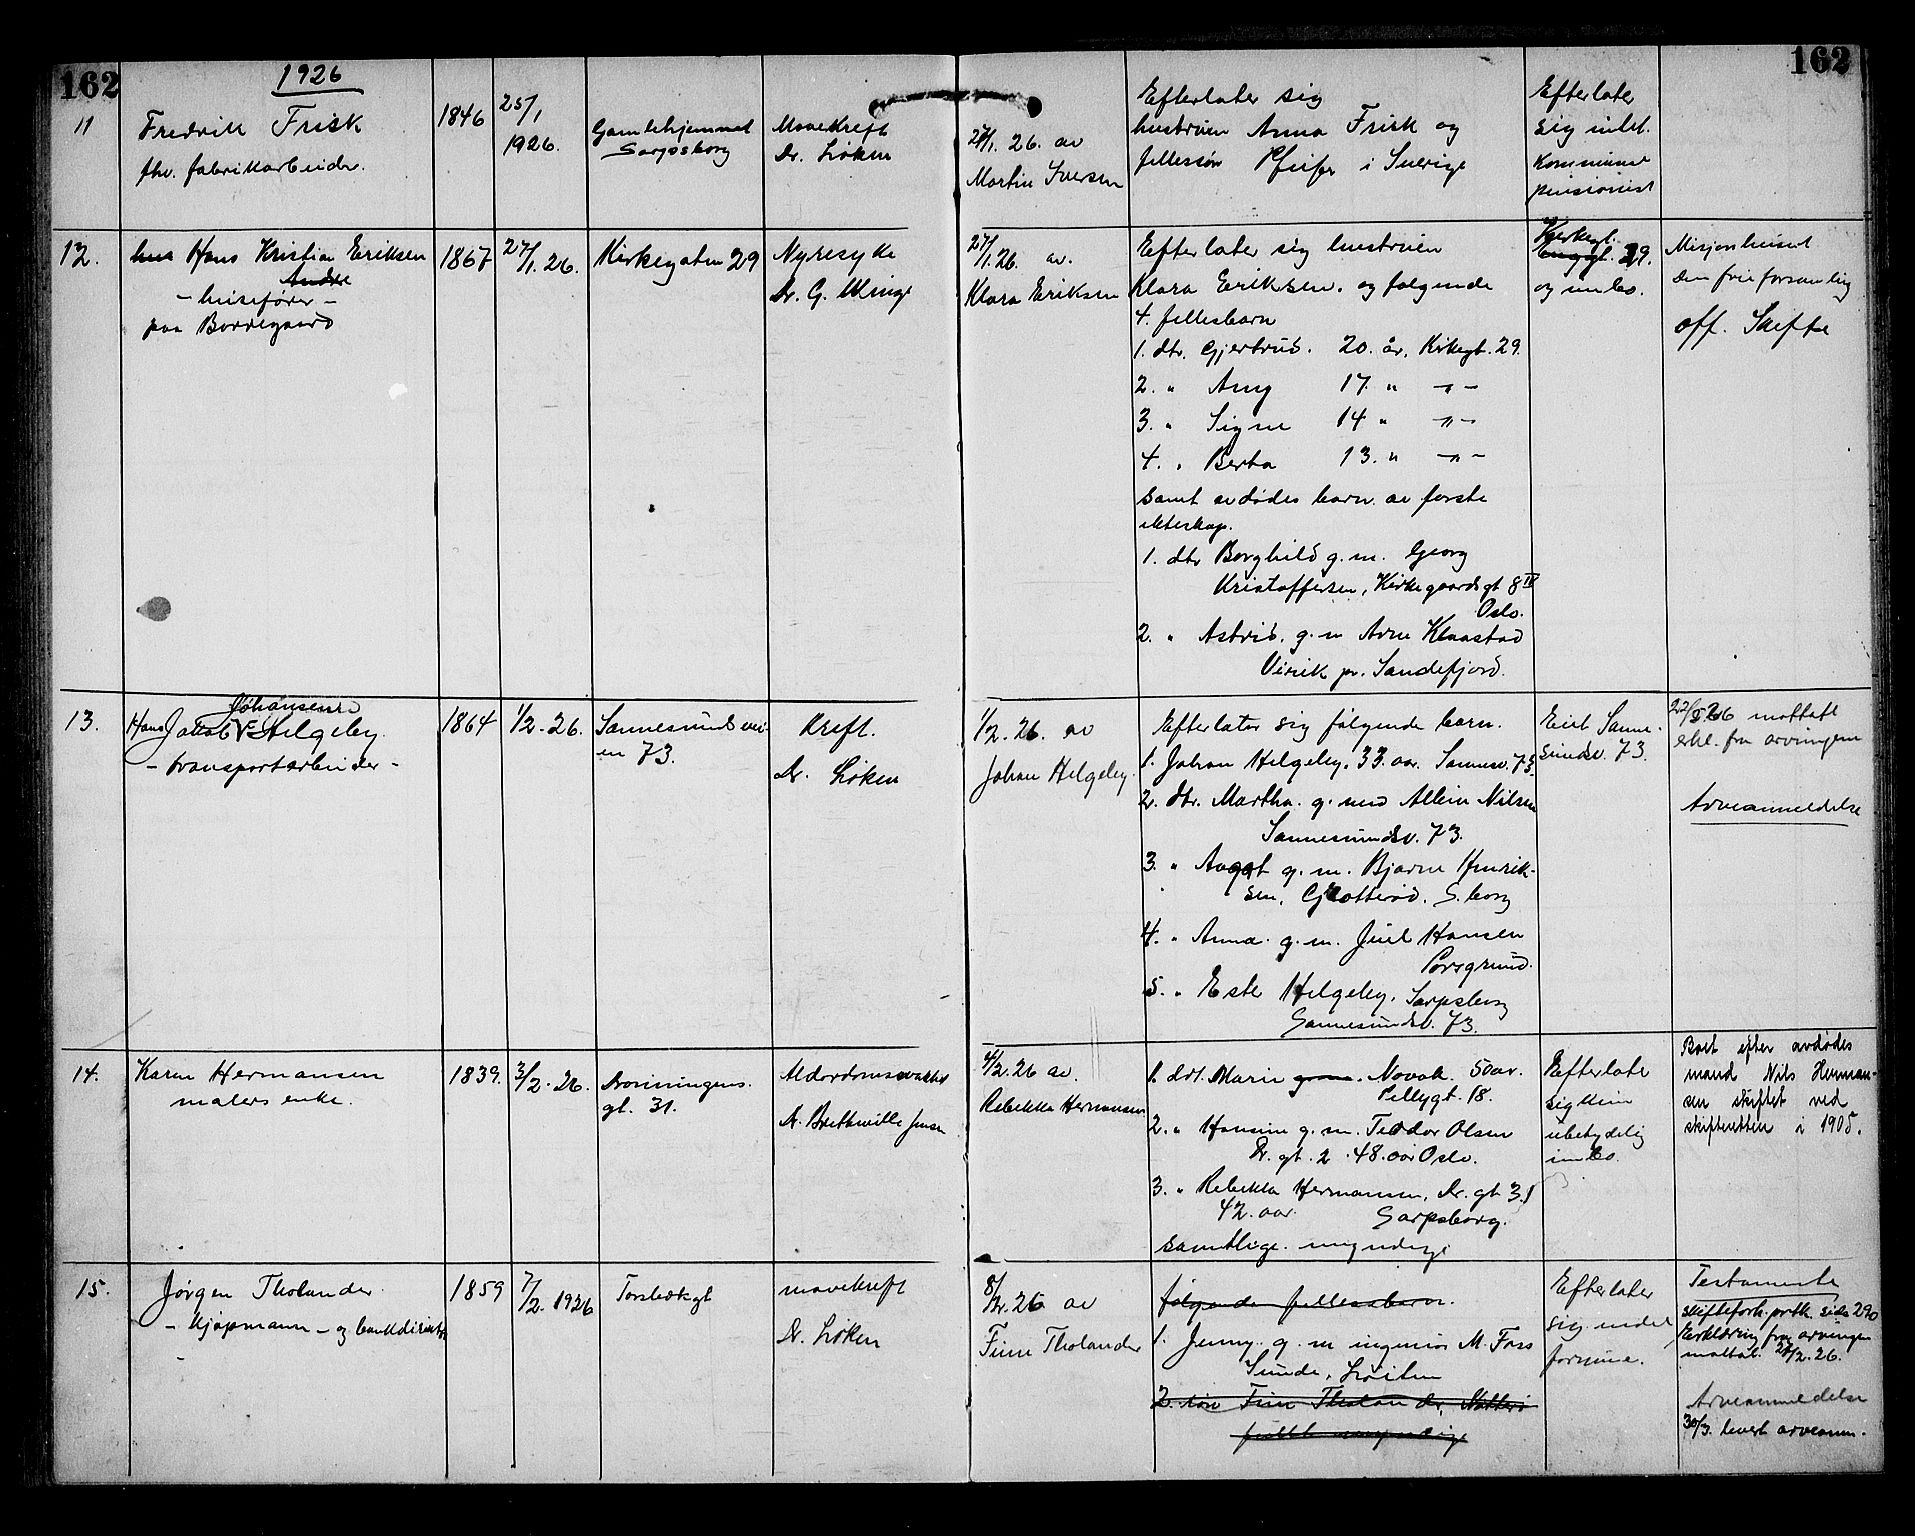 162
1926
162
11
Fredrik Frisk
fhv. fabrikkarbeider.
1846
25/1
1926.
Gamlehjemmet
Sarpsborg
Mavekreft
Dr. Løken
27/1. 26. av
Martin Iversen
Efterlater sig
hustruen Anna Frisk og
fellessøn Pfeifer i Sverige
Efterlater
sig intet.
Kommune
pensionist
12.
Hans Kristian Eriksen
Andre
- huseier -
paa Borregaard
1867
27/1. 26.
Kirkegaten 29
Nyresyke
Dr. G. Winge
27/1. 26. av.
Klara Eriksen
Efterlater sig hustruen
Klara Eriksen. og følgende
4. fellesbarn
1. dtr. Gjertrud. 20. år, Kirkegt. 29.
2. " Amy 17. " - " -
3. " Signe 14 " - " -
4. " Berta 13. " - " -
samt avdødes barn av første
ekteskap.
1. dtr Borghild g. m. Georg
Kristoffersen, Kirkegaardsgt 8 IV
Oslo.
2. " Astrid. g. m Arne Klaastad
Virik pr. Sandefjord.
Kirkegt.
29.
og innbo.
Misjonhuset
den frie forsamling
off. Skifte
13.
Johansen
Hans Jakob Helgeby.
- transportarbeider -
1864
1/2. 26.
Sannesundsvei-
en 73.
Kreft.
Dr. Løken
1/2. 26. av
Johan Helgeby.
Efterlater sig følgende barn.
1. Johan Helgeby. 33. aar. Sannesv. 73.
2. dtr. Martha. g. med Allein Nilsen
Sannesundsv. 73.
3. " Aagot g. m. Bjarne Henrik-
sen, Grotterød. S.borg
4. " Anna. g. m. Juel Hansen
Porsgrund.
5. " Ester Helgeby. Sarpsborg
Sannesundsv. 73.
Eiet Sanne-
sundsv. 73.
22/5 26 mottatt
erkl. fra arvingene
Arveanmeldelse
14.
Karen Hermansen
malers enke.
1839.
3/2. 26.
Dronningens.
gt. 31.
Alderdomssvakhet
Dr. Brethville Jensen
4/2. 26 av.
Rebekka Hermansen
1. dtr. Marie Novak. 50 aar.
Pellygt. 18.
2. " Hansine g. m. Teodor Olsen
Dr. gt. 2. 48. aar Oslo.
3. " Rebekka Hermansen, Dr. gt 31
42. aar. Sarpsborg.
samtlige. myndige
Efterlate
sig kun
ubetydelig
innbo.
Boet efter avdødes
mand Nils Herman-
sen skiftet ved
skifteretten i 1905.
15.
Jørgen Tholander.
- kjøpmann - og bankdirektør
1859
7/2. 1926
Torsbekgt
mavekreft
Dr. Løken
8/2. 26 av
Finn Tholander
følgende fellesbarn.
1. Jenny. g. m ingeniør M. Foss
Sunde, Løiten
2. søn Finn Tholander, Nøtterø
fullt myndig
Efterlater
sig endel
formue.
Testamente
skifteforh. protk. side 290
Erklæring fra arvingene
mottat. 27/2. 26.
Arveanmeldelse
30/3. levert arveanm.